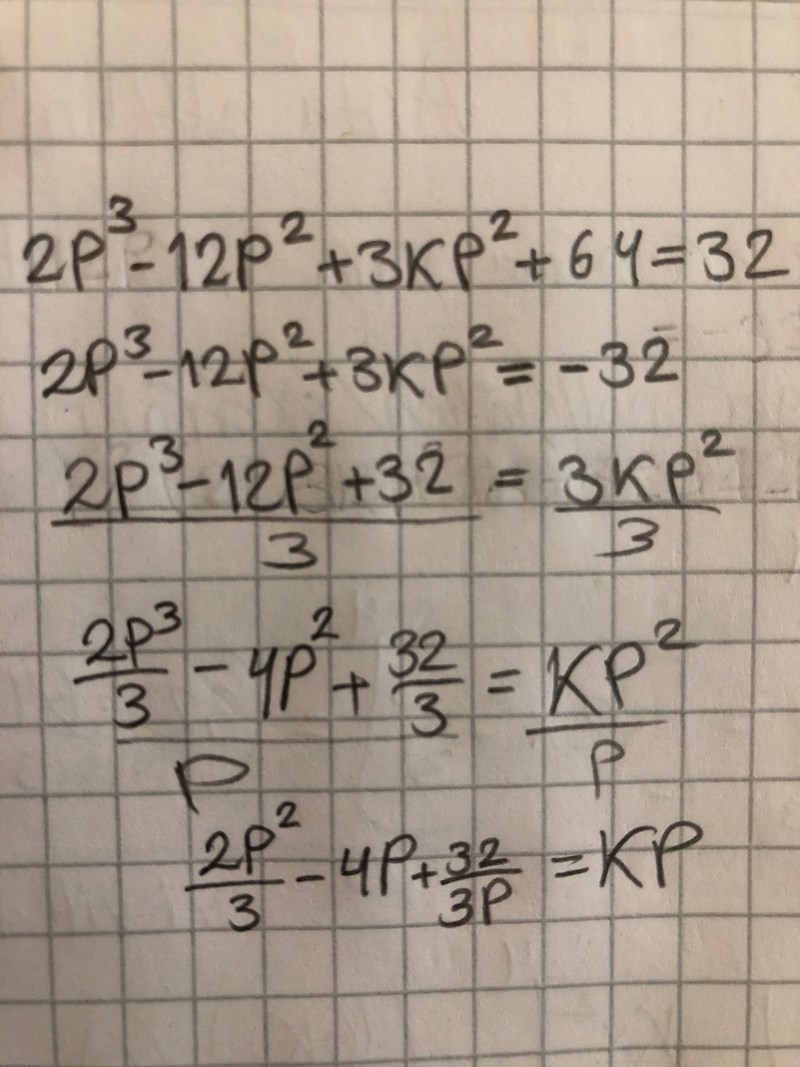 2P³-12P²+3KP²+64=32
2P³-12P²+3KP²=-32
(2P³-12P²+32)/3 = 3KP²/3
(2P³/3 - 4P² + 32/3)/P = KP²/P
2P²/3 - 4P + 32/3P = KP